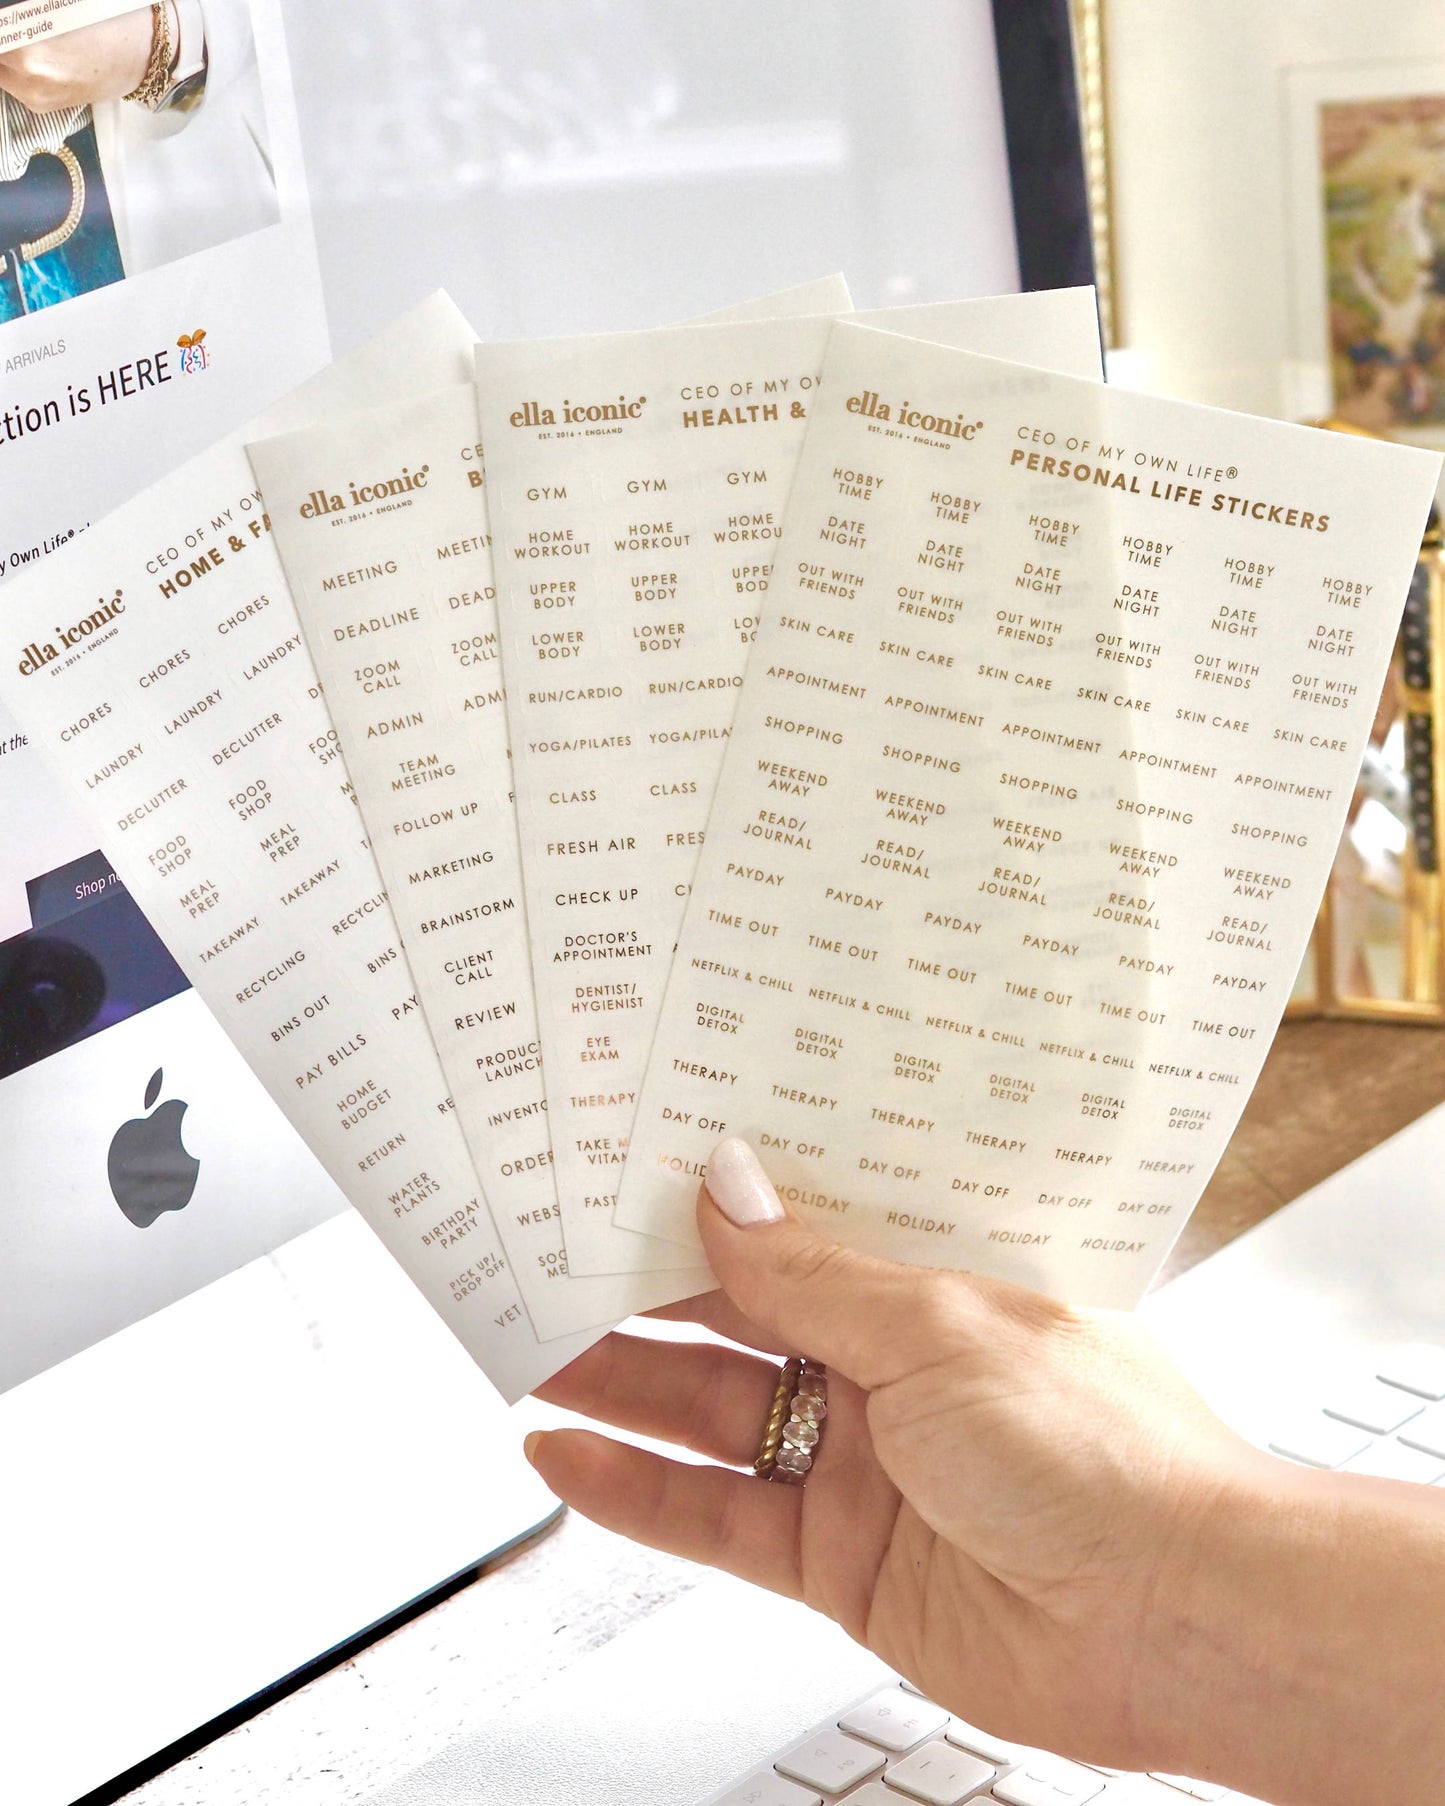 ps://www.ellaicon
nner-guide
ARRIVALS
ction is HERE
y Own Life®
t the
Shop n
ella iconic®
EST. 2016 • ENGLAND
CEO OF MY OW
HOME & FA
CHORES CHORES CHORES
LAUNDRY LAUNDRY LAUNDRY
DECLUTTER DECLUTTER DE
FOOD
SHOP
FOOD
SHOP
FOO
SHO
MEAL
PREP
MEAL
PREP
M
P
TAKEAWAY TAKEAWAY T
RECYCLING RECYCLIN
BINS OUT BINS
PAY BILLS PAY
HOME
BUDGET
RETURN RE
WATER
PLANTS
BIRTHDAY
PARTY
PICK UP/
DROP OFF
VET
ella iconic®
EST. 2016 • ENGLAND
CE
B
MEETING MEETIN
DEADLINE DEAD
ZOOM
CALL
ZOOM
CALL
ADMIN ADMI
TEAM
MEETING
FOLLOW UP F
MARKETING
BRAINSTORM
CLIENT
CALL
REVIEW
PRODUC
LAUNCH
INVENTO
ORDER
WEBS
SOC
ME
ella iconic®
EST. 2016 • ENGLAND
CEO OF MY OV
HEALTH &
GYM GYM GYM
HOME
WORKOUT
HOME
WORKOUT
HOME
WORKOU
UPPER
BODY
UPPER
BODY
UPPE
BOD
LOWER
BODY
LOWER
BODY
LOW
BO
RUN/CARDIO RUN/CARDIO
YOGA/PILATES YOGA/PILA
CLASS CLASS
FRESH AIR FRES
CHECK UP C
DOCTOR'S
APPOINTMENT
DENTIST/
HYGIENIST
EYE
EXAM
THERAPY
TAKE M
VITAM
FAST
ella iconic®
EST. 2016 • ENGLAND
CEO OF MY OWN LIFE®
PERSONAL LIFE STICKERS
HOBBY HOBBY HOBBY HOBBY HOBBY HOBBY
TIME TIME TIME TIME TIME TIME
DATE DATE DATE DATE DATE DATE
NIGHT NIGHT NIGHT NIGHT NIGHT NIGHT
OUT WITH OUT WITH OUT WITH OUT WITH OUT WITH OUT WITH
FRIENDS FRIENDS FRIENDS FRIENDS FRIENDS FRIENDS
SKIN CARE SKIN CARE SKIN CARE SKIN CARE SKIN CARE SKIN CARE
APPOINTMENT APPOINTMENT APPOINTMENT APPOINTMENT APPOINTMENT
SHOPPING SHOPPING SHOPPING SHOPPING SHOPPING
WEEKEND WEEKEND WEEKEND WEEKEND WEEKEND
AWAY AWAY AWAY AWAY AWAY
READ/ READ/ READ/ READ/ READ/
JOURNAL JOURNAL JOURNAL JOURNAL JOURNAL
PAYDAY PAYDAY PAYDAY PAYDAY PAYDAY PAYDAY
TIME OUT TIME OUT TIME OUT TIME OUT TIME OUT TIME OUT
NETFLIX & CHILL NETFLIX & CHILL NETFLIX & CHILL NETFLIX & CHILL NETFLIX & CHILL
DIGITAL DIGITAL DIGITAL DIGITAL DIGITAL DIGITAL
DETOX DETOX DETOX DETOX DETOX DETOX
THERAPY THERAPY THERAPY THERAPY THERAPY THERAPY
DAY OFF DAY OFF DAY OFF DAY OFF DAY OFF DAY OFF
HOLID HOLIDAY HOLIDAY HOLIDAY HOLIDAY